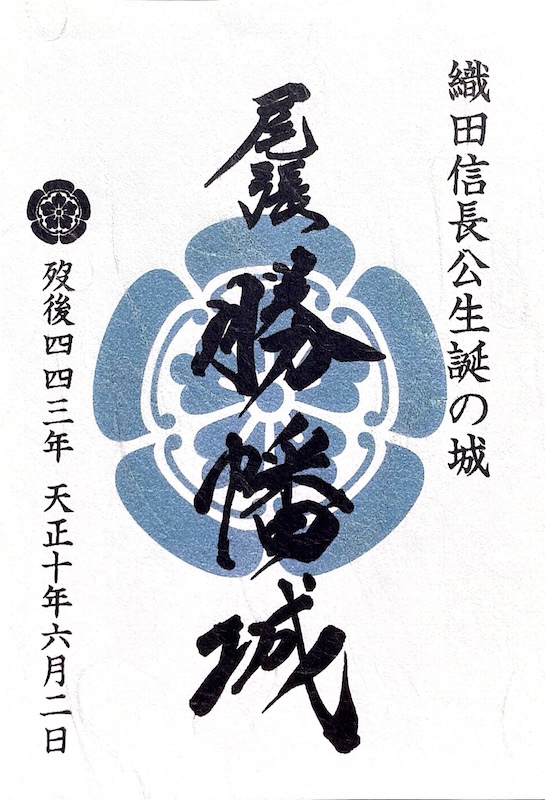 織田信長公生誕の城
尾張
勝幡城
歿後四四三年 天正十年六月二日